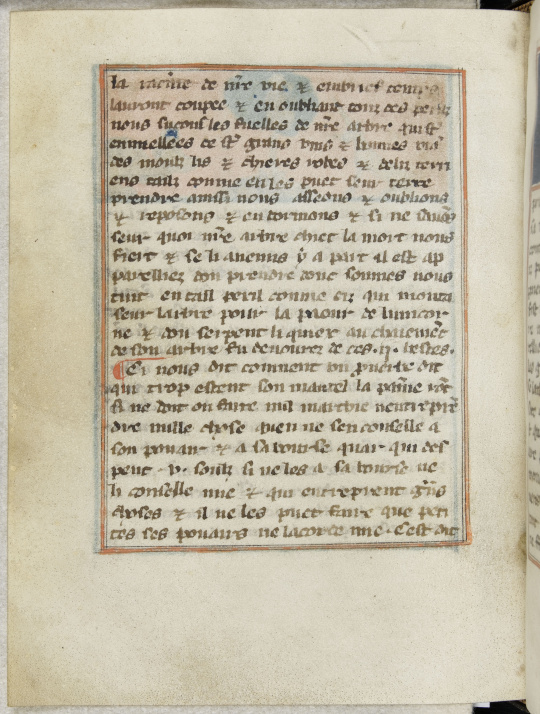 la racine de nr̄e vie & en brief temps
lauront coupee & en oubliant touz ces perilz
nous sucons les fuelles de nr̄e arbre qui st̄
enmiellees de
des moulz lis & chieres robes & deliz terri
ens tailz comme en les puet seur terre
prendre ainssi nous asseons & oublions
& reposons & endormons & si ne
seur quoi nr̄e arbre chiet la mort nous
fiert & se li anemis y a part il est ap
parelliez don prendre dont sommes nous
tuit en tail peril comme cis qui monta
seur larbre pour la paour de lunicor
ne & dou serpent li quiex au chaiement
de son arbre fu devourez de ces .ij. bestes.
Ci nous dit comment un proverbe dit
qui trop estent son mantel la panne
Si ne doit on faire nul marchie neutrepren
dre nulle chose quen ne sen conselle a
son pouair & a sa bourse quar qui des
pent .v. soulz si ne les a sa bourse ne
li conselle mie & qui entreprent
choses & il ne les puet faire que peti
tes ses pouairs ne lacorde mie. Cest dit